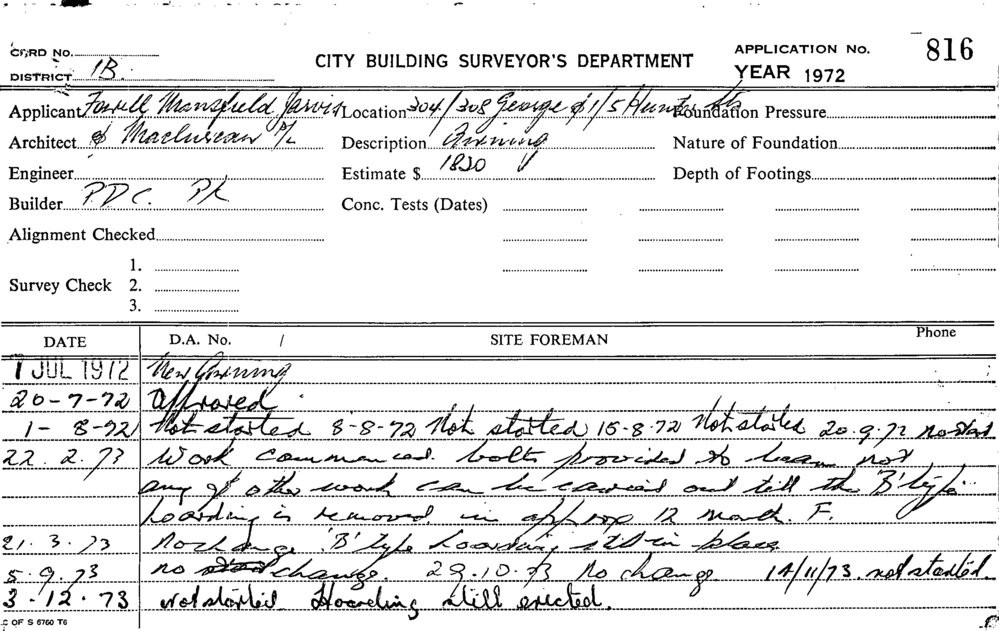 CARD No.
DISTRICT 1B.
CITY BUILDING SURVEYOR'S DEPARTMENT
APPLICATION No. 816
YEAR 1972
Applicant Fowell Mansfield Jarvis
Location 304/308 George & 1/5 Hunter Sts
Foundation Pressure
Architect & Maclurcan P/L
Description Awning
Nature of Foundation
Engineer
Estimate $ 1820
Depth of Footings
Builder P.D.C. P/L
Conc. Tests (Dates)
Alignment Checked
Survey Check 1.
2.
3.
DATE D.A. No. / SITE FOREMAN Phone
JUL 1972 New Awning
20-7-72 Approved.
1-8-72 Not started 8-8-72 Not started 15-8-72 Not started 20.9.72 no start
22.2.73 Work commenced. bolts provided to beam not
any of other work can be carried out till the 'B' type
hoarding is removed in approp 12 month. F.
21.3.73 No change 'B' type hoarding still in place
5.9.73 no change. 29.10.73 No change. 14/11/73. not started
3-12-73 not started Hoarding still erected.
C OF S 6760 T6